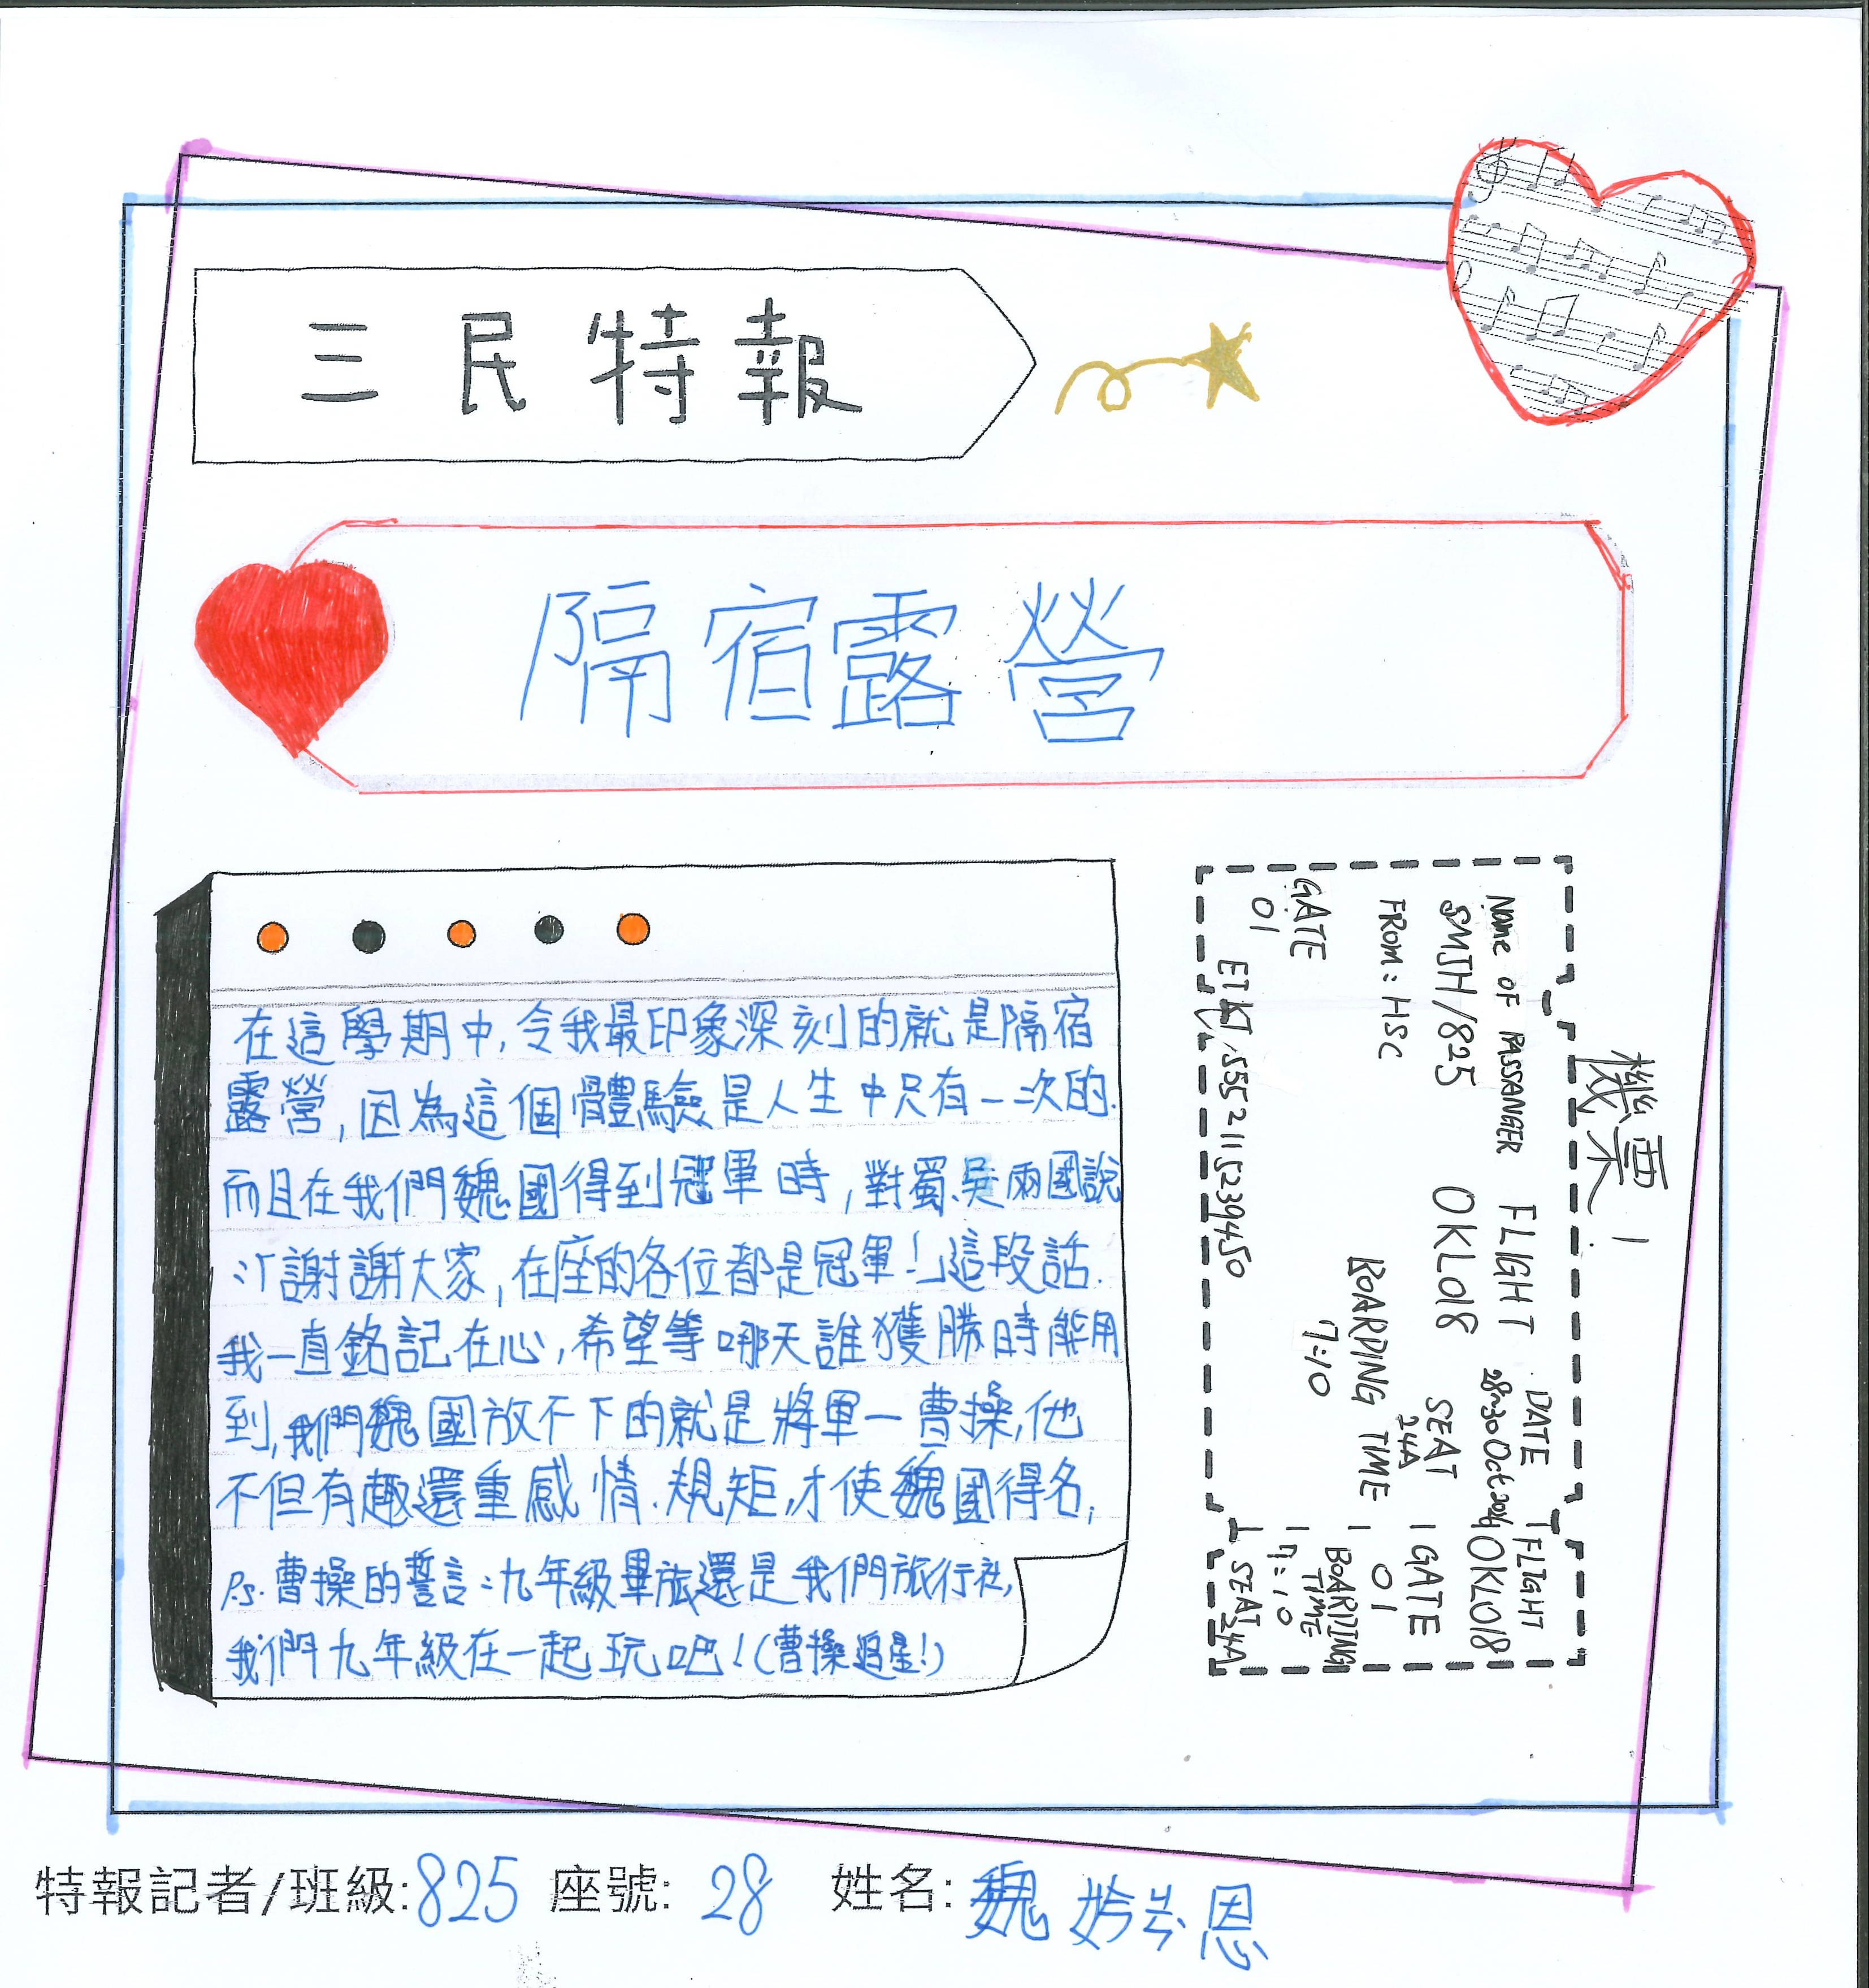 三民特報
隔宿露營
在這學期中,令我最印象深刻的就是隔宿
露營,因為這個體驗是人生中只有一次的.
而且在我們魏國得到冠軍時,對蜀、吳兩國說
:「謝謝大家,在座的各位都是冠軍!」這段話.
我一直銘記在心,希望等哪天誰獲勝時能用
到,我們魏國放不下的就是將軍—曹操,他
不但有趣還重感情、規矩,才使魏國得名,
P.s.曹操的誓言:九年級畢旅還是我們旅行社,
我們九年級在一起玩吧!(曹操追星!)
機票
NAME OF PASSANGER FLIGHT DATE
SMJH/825 OKL018 28~30 Oct
FROM: HSC SEAT
24A
BOARDING TIME
7:10
GATE
01
ETKT.5552115239450
FLIGHT
OKL018
GATE
01
BOARDING
TIME
7:10
SEAT 24A
特報記者/班級:825 座號: 28 姓名: 魏 恩